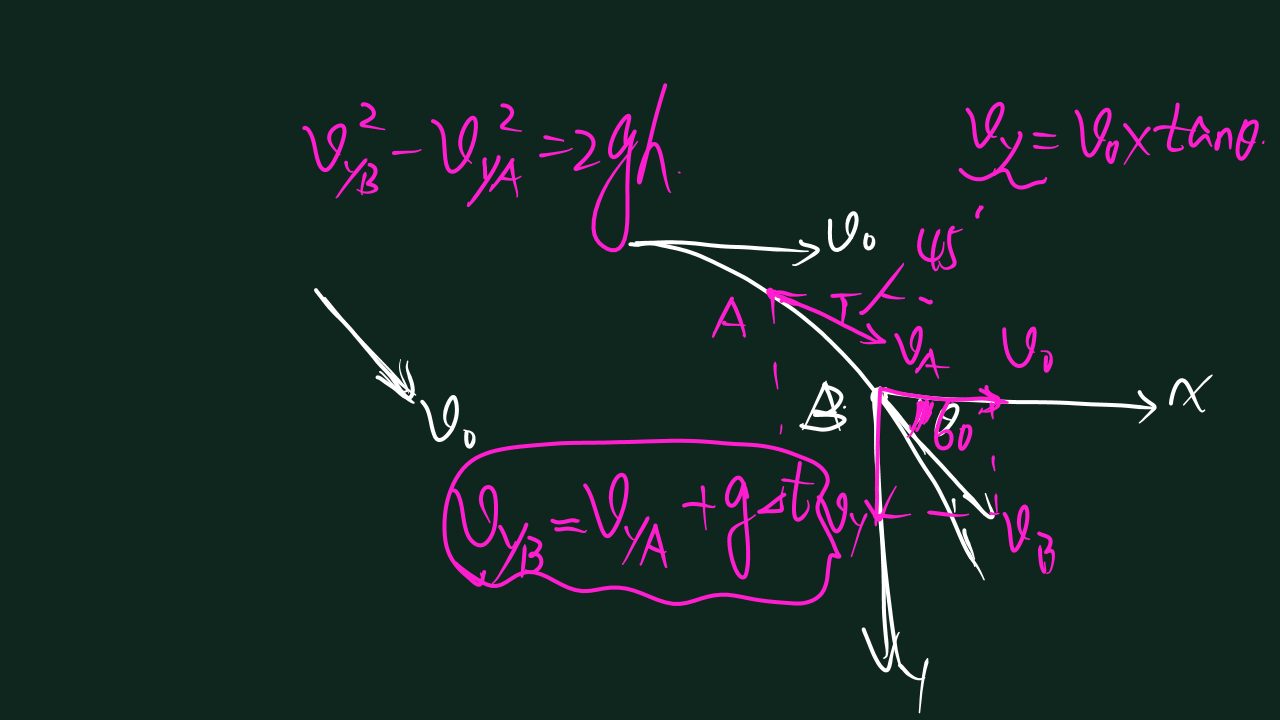 v_{yB}^2 - v_{yA}^2 = 2gh.
v_y = v_0 × tanθ.
v_0
45°
A
v_A
v_0
x
B
θ
60°
v_0
v_{yB} = v_{yA} + g△t
v_y
v_B
y